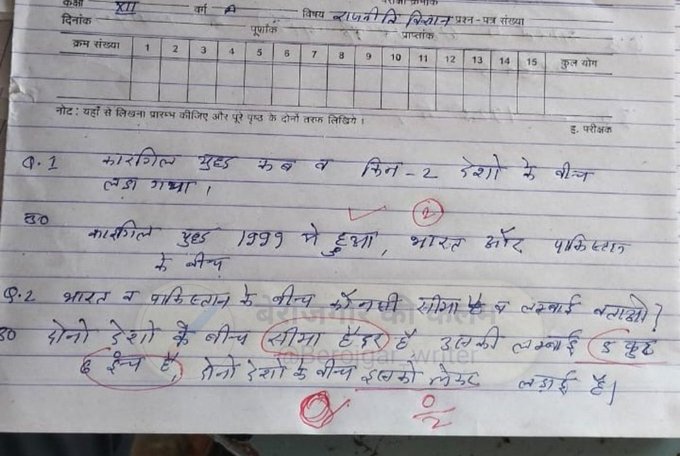 कक्षा XII वर्ग A विषय राजनीति विज्ञान प्रश्न-पत्र संख्या
दिनांक पूर्णांक प्राप्तांक
क्रम संख्या 1 2 3 4 5 6 7 8 9 10 11 12 13 14 15 कुल योग
नोट : यहाँ से लिखना प्रारम्भ कीजिए और पूरे पृष्ठ के दोनों तरफ लिखिये ।
ह. परीक्षक
Q.1 कारगिल युद्ध कब व किन-2 देशो के बीच
लडा गया ।
2
उ0 कारगिल युद्ध 1999 मे हुआ, भारत और पाकिस्तान
के बीच
Q.2 भारत व पाकिस्तान के बीच कौनसी सीमा है व लम्बाई बताओ?
बेरोजगार की कलम
उ0 दोनो देशो के बीच सीमा हैदर है उसकी लम्बाई 5 फुट
@Berojgar_writer
6 इंच है, दोनो देशो के बीच इसको लेकर लड़ाई है।
0
0/2